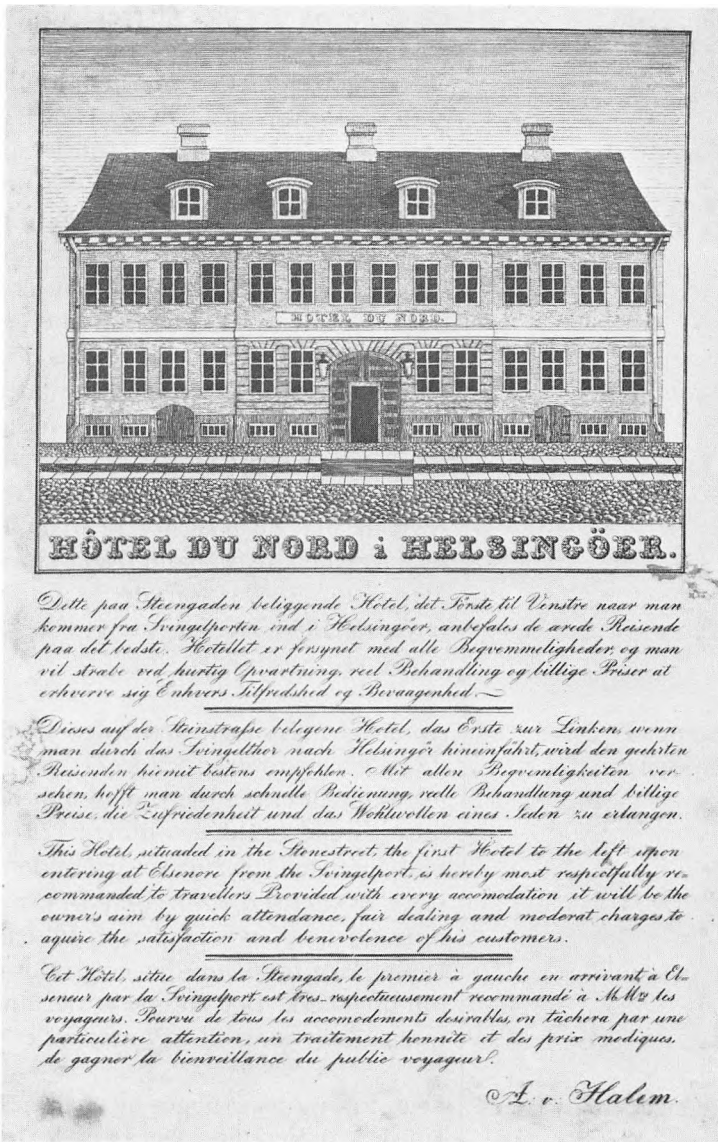 HOTEL DU NORD.
HÔTEL DU NORD i HELSINGÖER.
Dette paa Steengaden beliggende Hotel, det Förste til Venstre naar man
kommer fra Svingelporten ind i Helsingöer, anbefales de ærede Reisende
paa det bedste. Hotellet er forsynet med alle Begvemmeligheder, og man
vil stræbe ved hurtig Opvartning, reel Behandling og billige Priser at
erhverve sig Enhvers Tilfredshed og Bevaagenhed.
Dieses auf der Steinstraße belegene Hotel, das Erste zur Linken, wenn
man durch das Svingelthor nach Helsingör hineinfährt, wird den geehrten
Reisenden hiemit bestens empfohlen. Mit allen Begvemligkeiten ver-
sehen, hofft man durch schnelle Bedienung, reelle Behandlung und billige
Preise, die Zufriedenheit und das Wohlwollen eines Jeden zu erlangen.
This Hotel, situaded in the Stonestreet, the first Hotel to the left upon
entering at Elsenore from the Svingelport, is hereby most respectfully re=
commanded to travellers Provided with every accomodation it will be the
owner's aim by quick attendance, fair dialing and moderat charges, to
aquire the satisfaction and benevolence of his customers.
Cet Hôtel, situe dans la Steengade, le premier à gauche en arrivant à El=
seneur par la Svingelport est tres-respectueusement recommandé à M.Mrs les
voyageurs. Pourvu de tous les accomodements desirables, on tâchera par une
particulière attention, un traitement honnête et des prix modiques,
de gagner la bienveillance du public voyageur.
A. v. Halem.